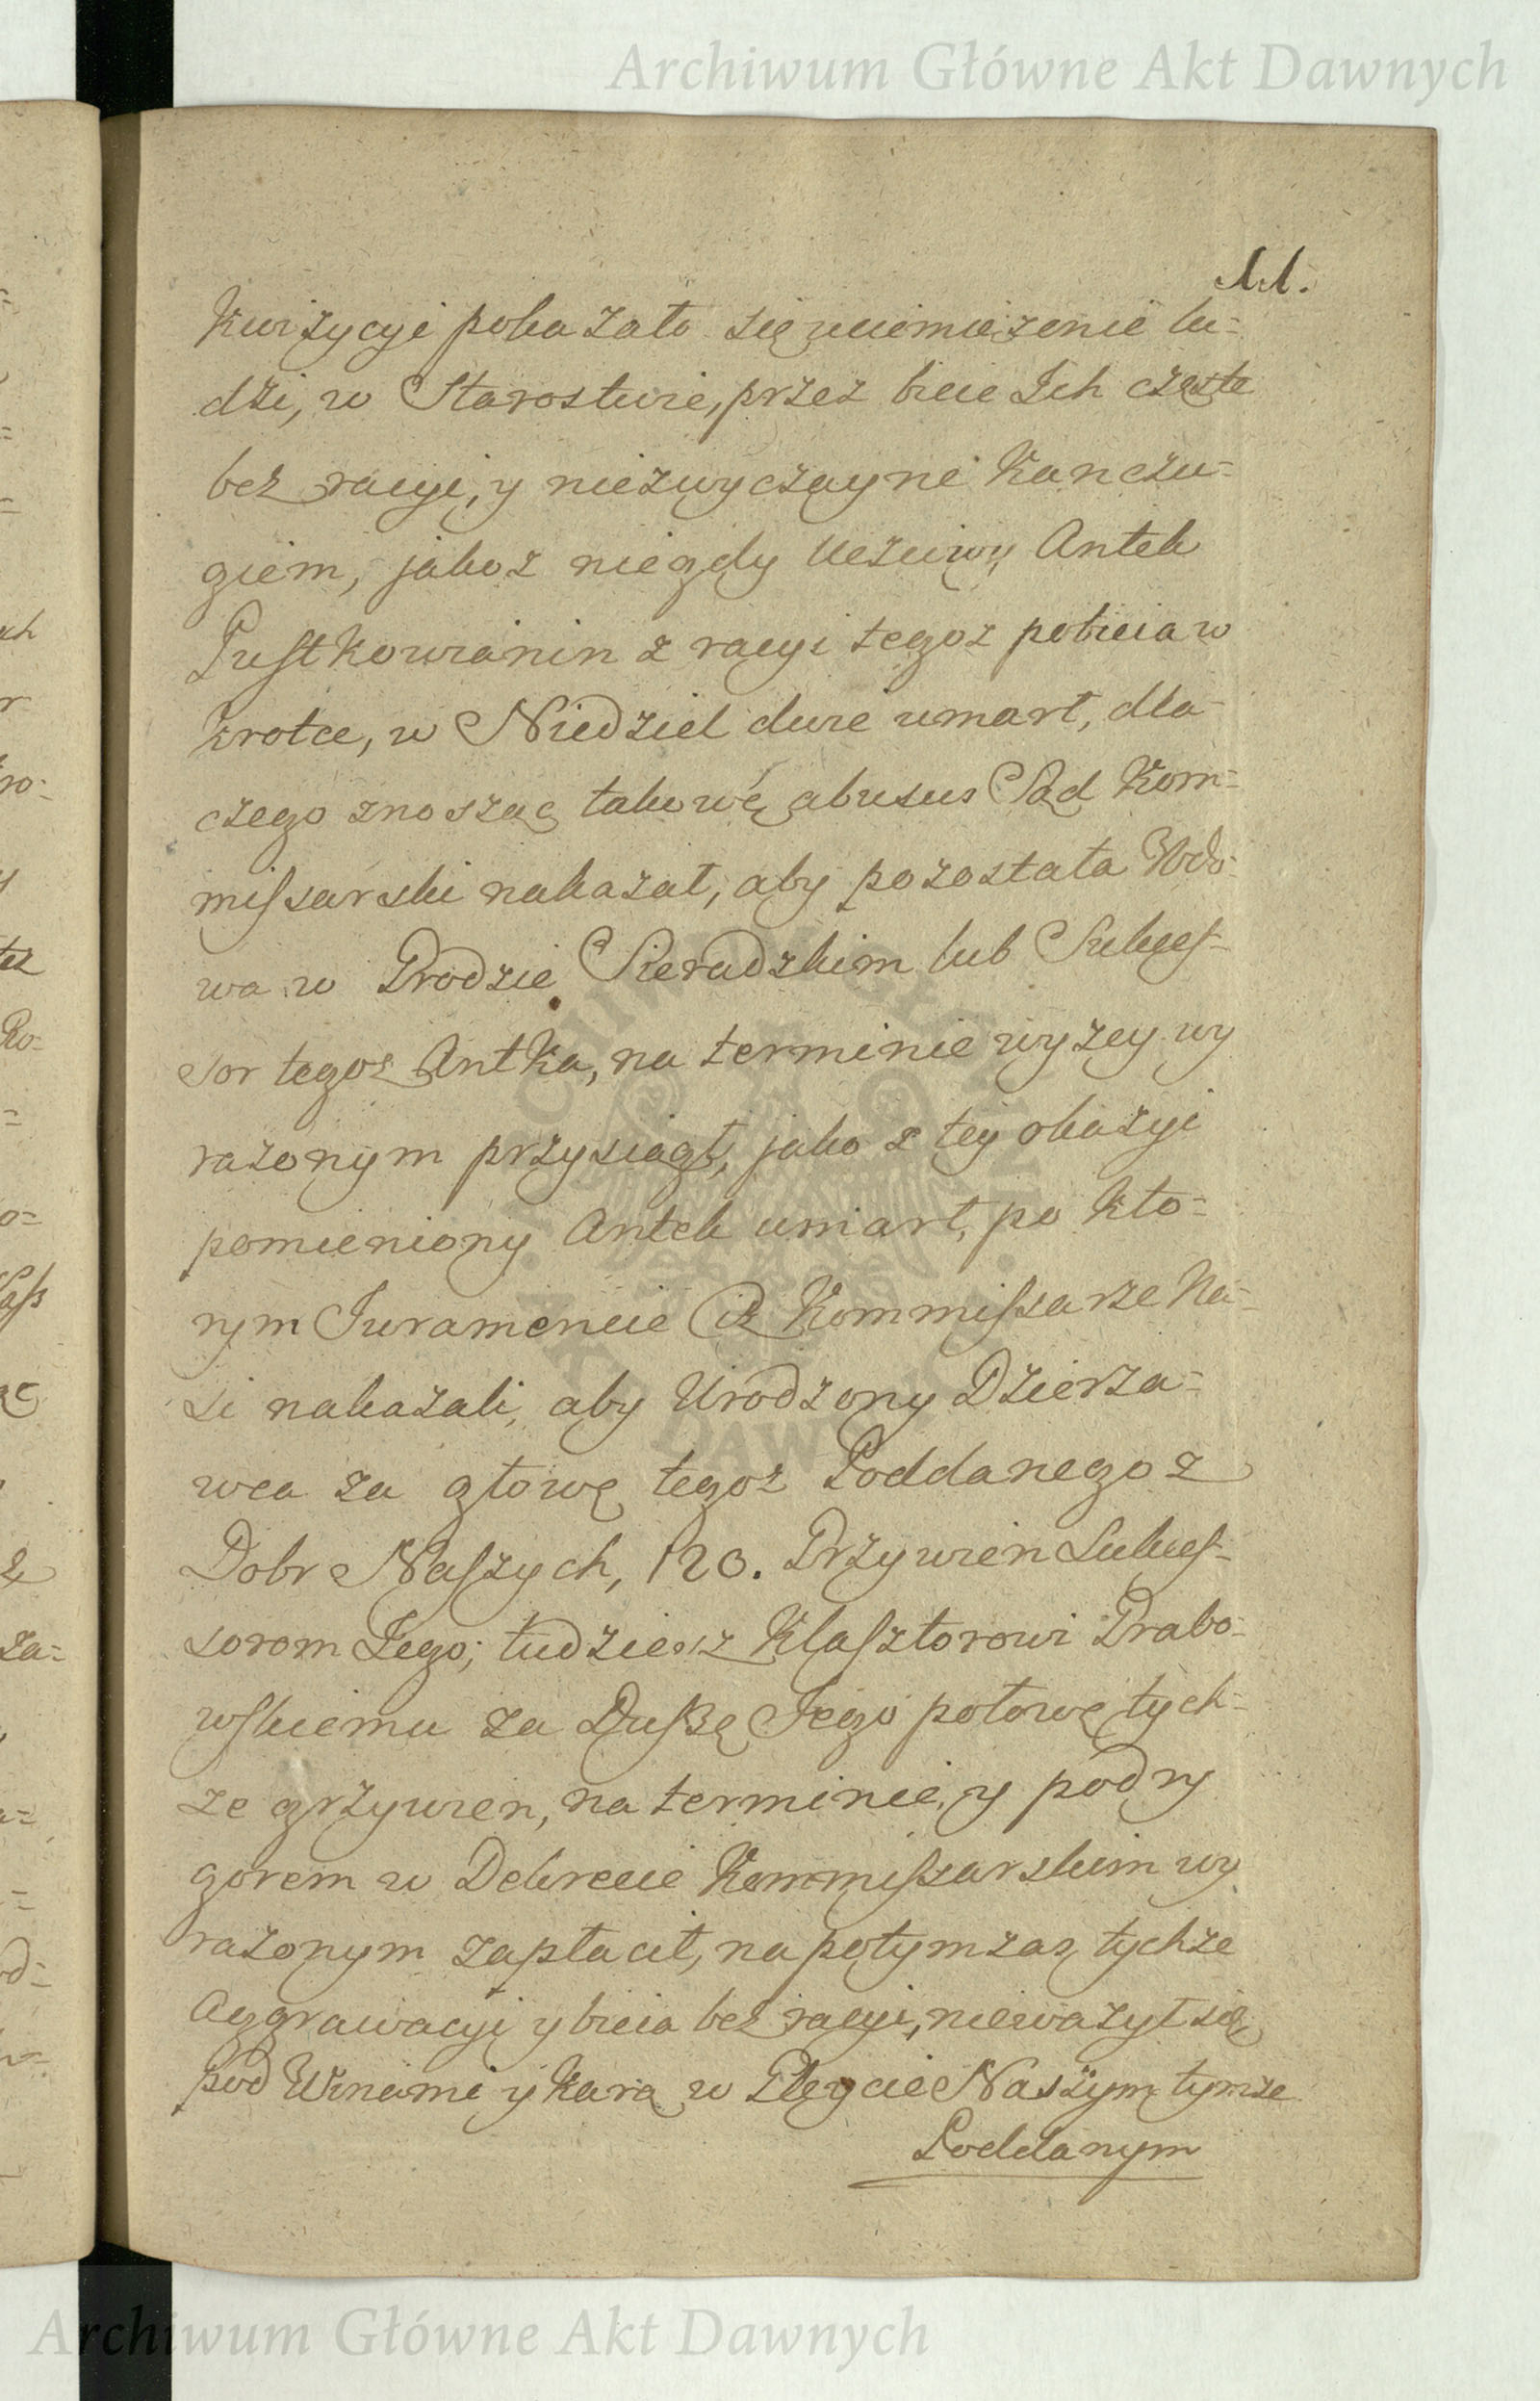 Archiwum Główne Akt Dawnych
11.
kwizycyi pokazało się uciemiężenie lu=
dzi, w Starostwie, przez bicie Ich częste
bez racyi, y niezwyczayne Kanczu=
giem, jakoż niegdy Uczciwy Antek
Pustkowianin z racyi tegoż pobicia w
krotce, w Niedziel dwie umarł, dla=
czego znosząc takowę abusus Sąd Kom=
missarski nakazał, aby pozostała Wdo=
wa w Grodzie Sieradzkim lub Sukces=
sor tegoż Antka, na terminie wyżey wy
rażonym przysiągł, jako z tey okazyi
pomieniony Antek umarł, po kto=
rym Iuramencie Ciż Kommissarze Na=
si nakazali, aby Urodzony Dzierża=
wca za głowę tegoż Poddanego z
Dobr Naszych, 120. Grzywien Sukces=
sorom Jego; tudzież Klasztorowi Grabo=
wskiemu za Duszę Jego połowę tych=
że grzywien, na terminie, y pod ry
gorem w Dekrecie Kommissarskim wy
rażonym zapłacił, na potym zaś tychże
Aggrawacyi y bicia bez racyi, nieważył się
pod Winami y karą w Plegcie Naszym tymże
Poddanym
Archiwum Główne Akt Dawnych